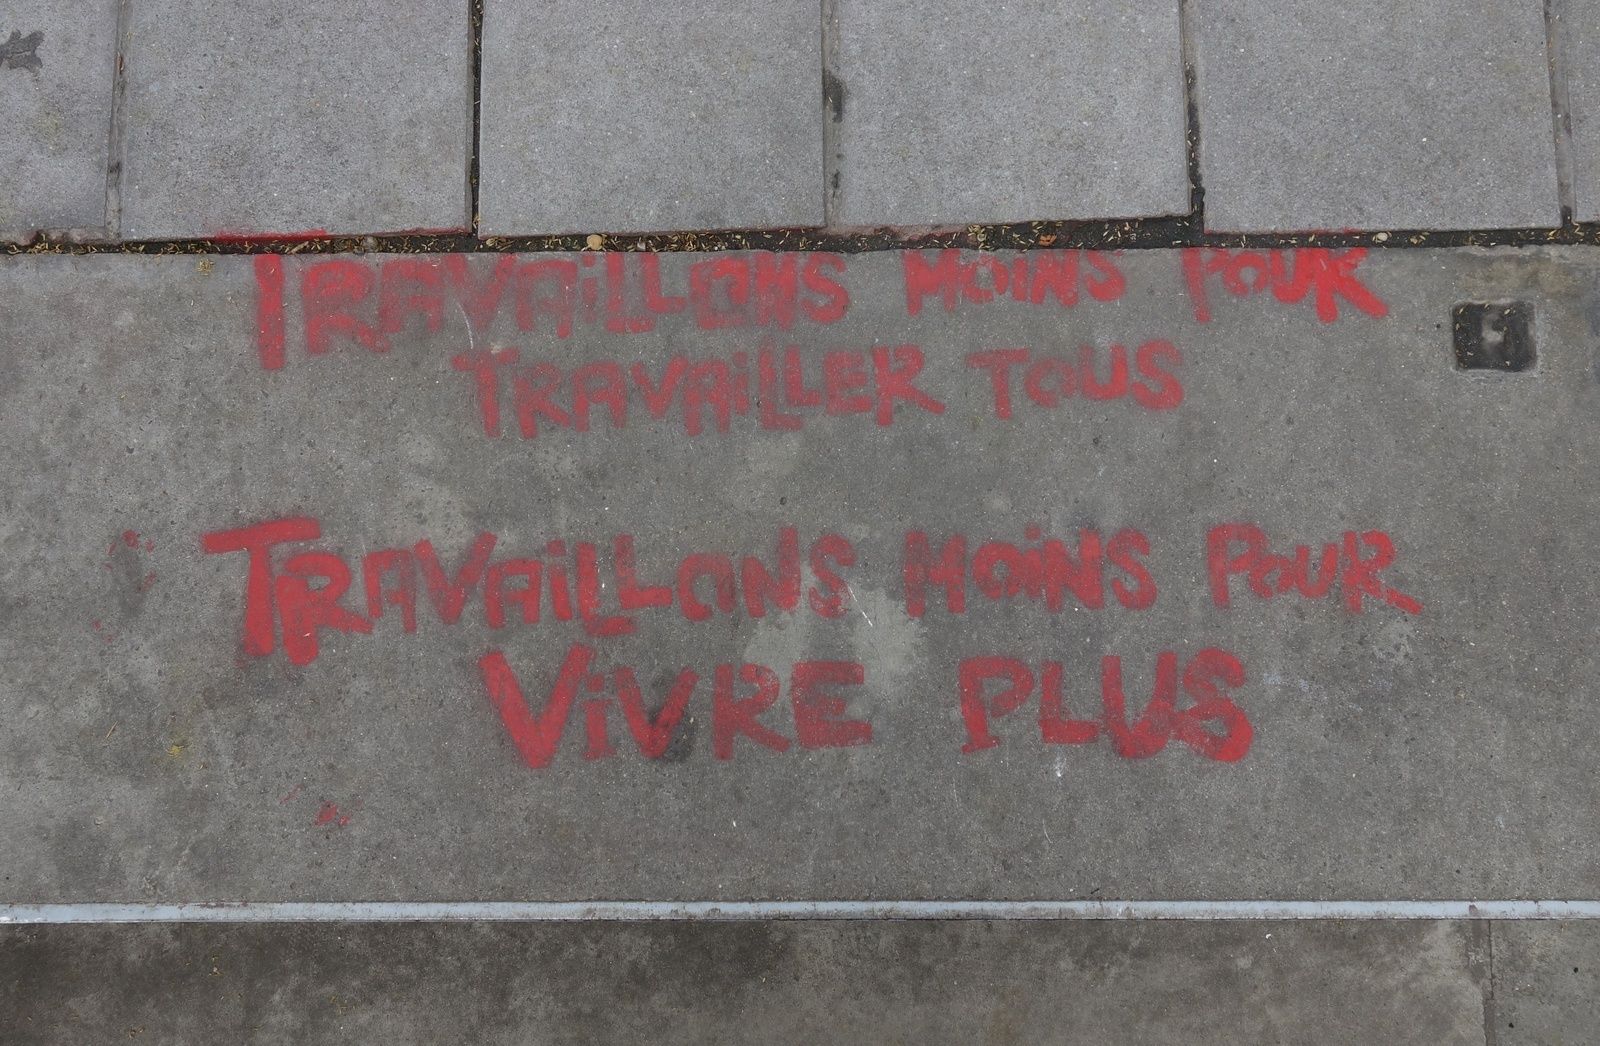 TRAVAiLLONS MOiNS POUR
TRAVAiLLER TOUS
TRAVAiLLONS MOiNS POUR
ViVRE PLUS